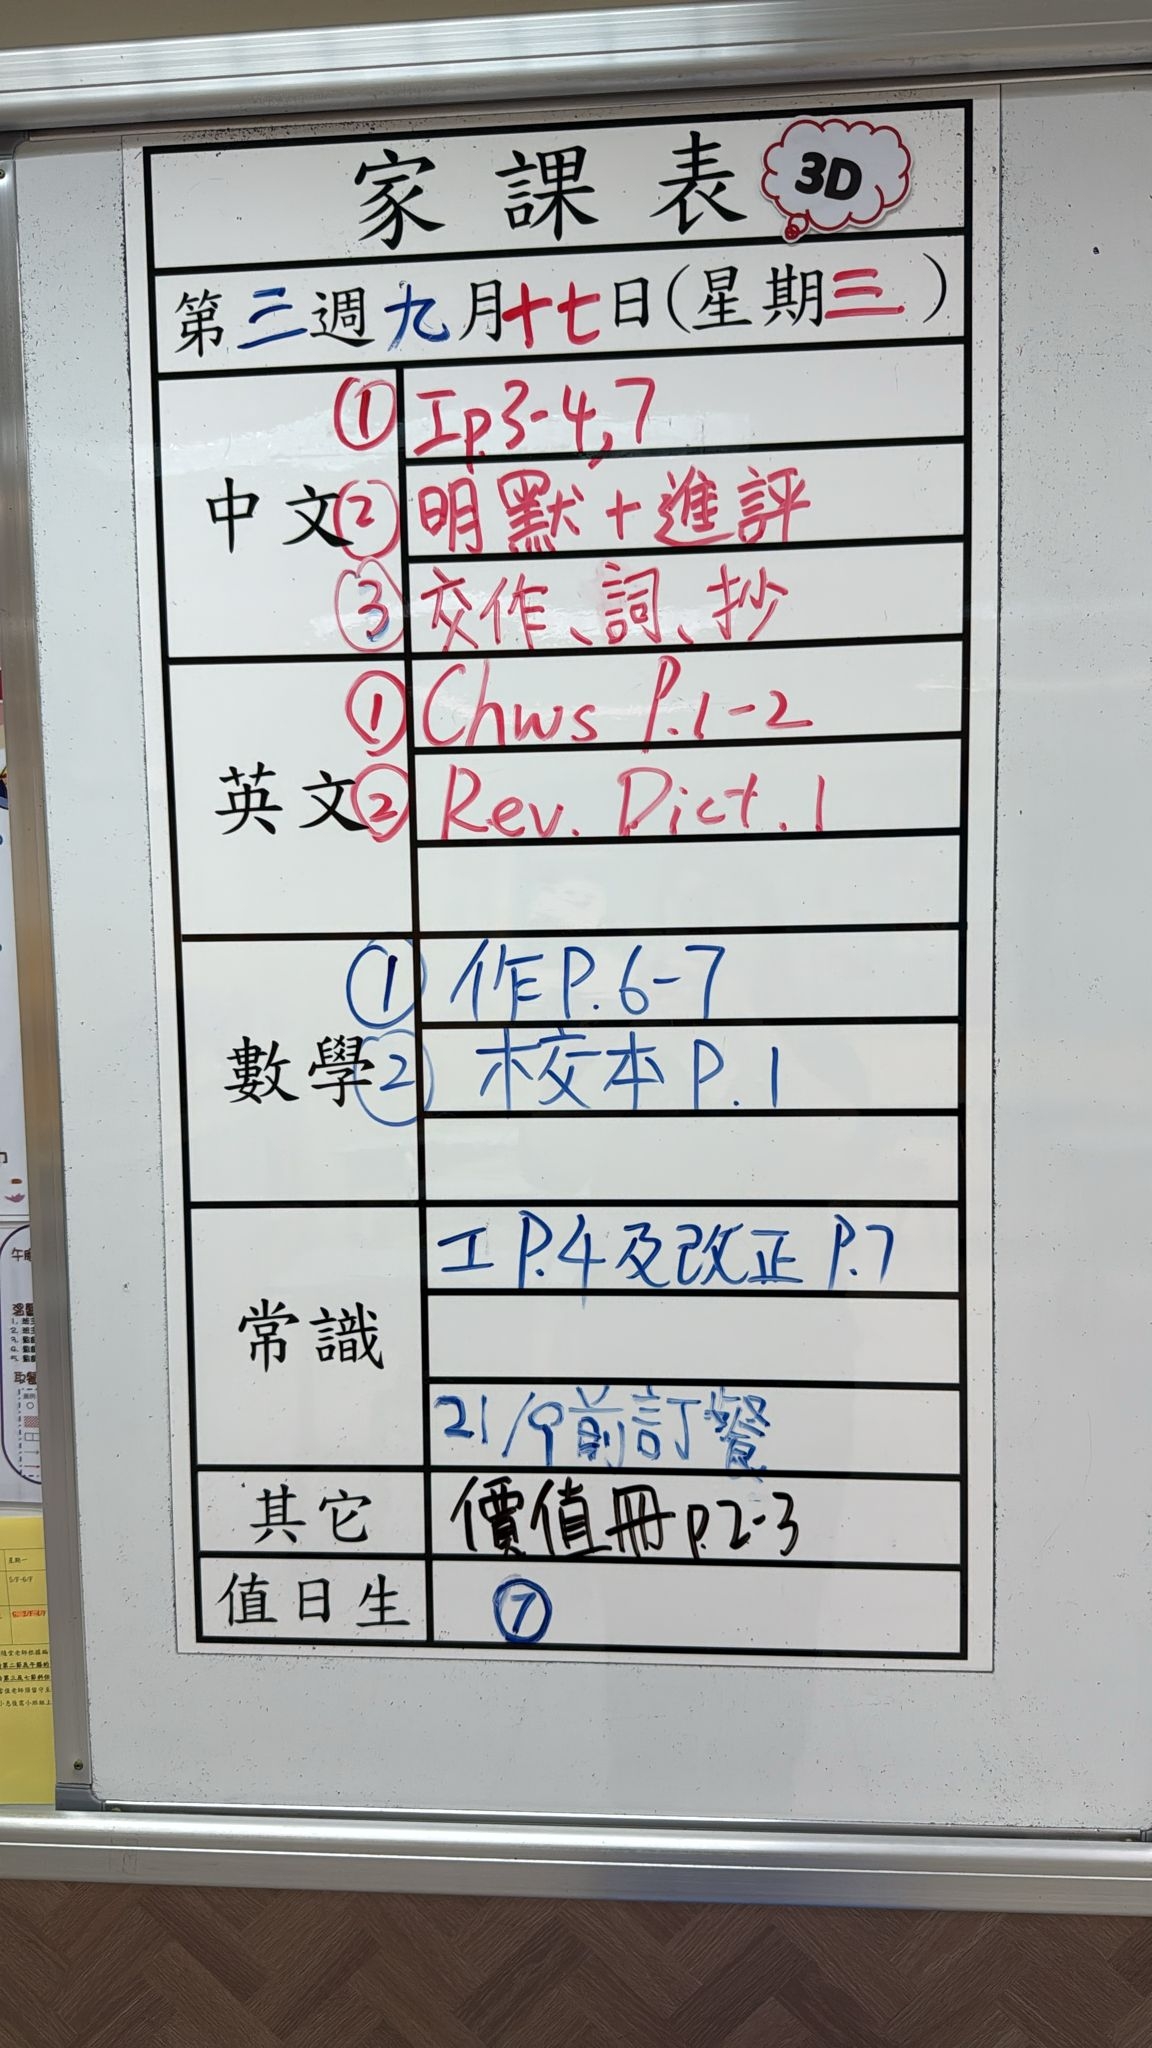 家課表 3D
第三週九月十七日(星期三)
中文
① 工p.3-4,7
② 明默+進評
③ 交作、詞、抄
英文
① Chws P.1-2
② Rev. Dict. 1
數學
① 作P.6-7
② 校本 P.1
常識
工 P.4及改正 P.7
21/9前訂餐
其它 價值冊 p.2-3
值日生 ⑦
星期一